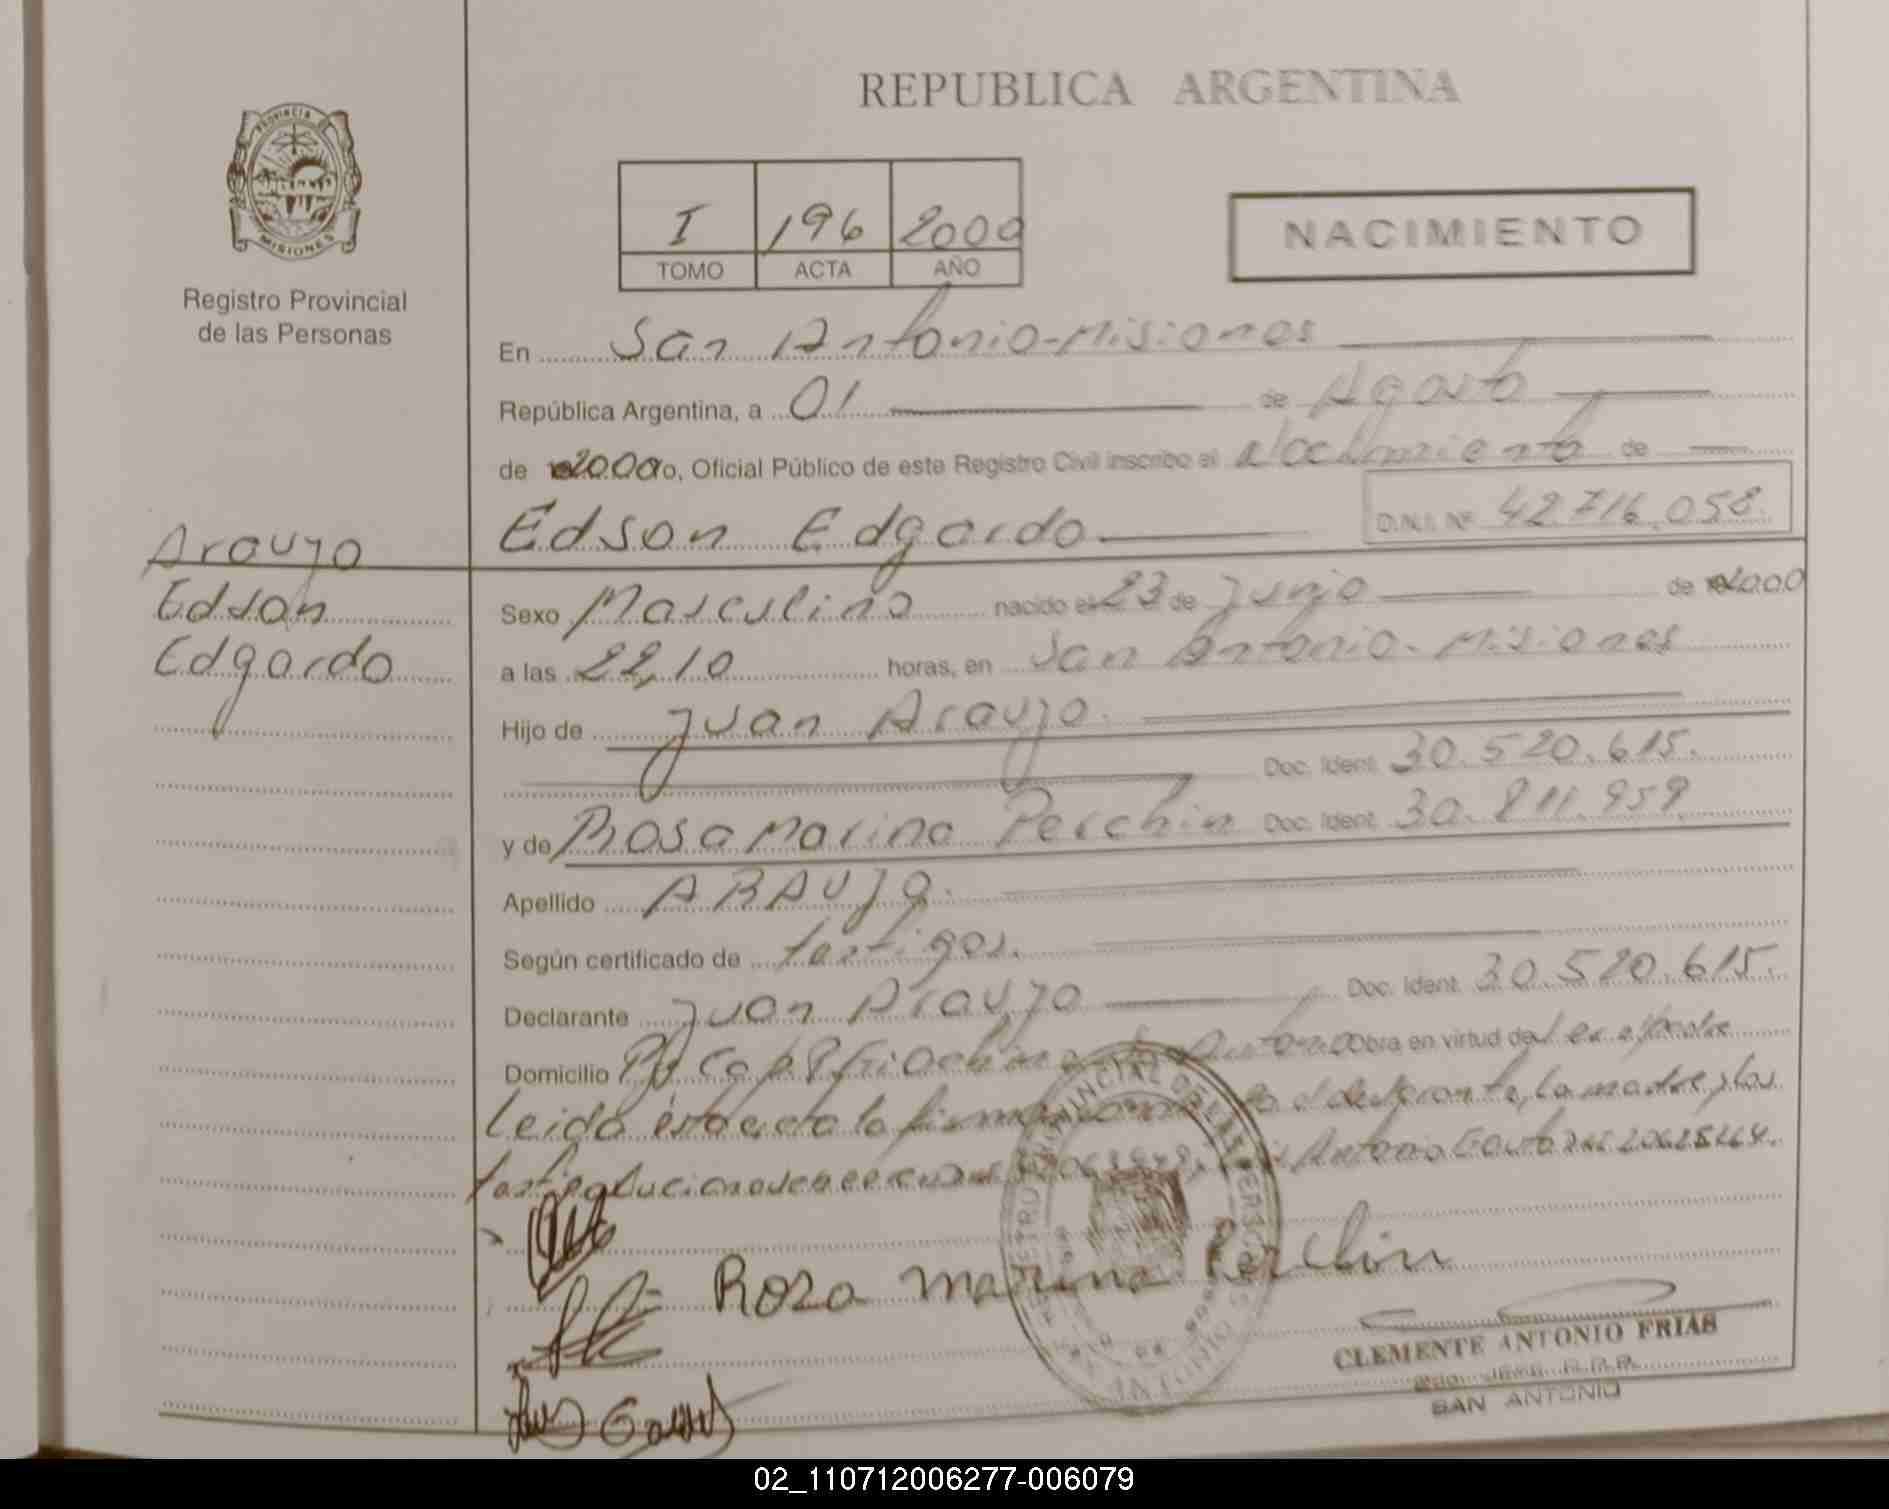 REPUBLICA ARGENTINA
PROVINCIA DE
MISIONES
Registro Provincial
de las Personas
I 196 2000
TOMO ACTA AÑO
NACIMIENTO
En San Antonio-Misiones
República Argentina, a 01 de Agosto
de 2000 o, Oficial Público de este Registro Civil inscribo el Nacimiento de
Edson Edgardo D.N.I. Nº 42.716.058.
Araujo
Edson
Edgardo
Sexo Masculino nacido el 23 de Junio de 2000
a las 22,10 horas, en San Antonio-Misiones
Hijo de Juan Araujo.
Doc. Ident. 30.520.615.
y de Rosa Marina Perchin Doc. Ident. 30.811.959
Apellido ARAUJO.
Según certificado de testigos.
Declarante Juan Araujo Doc. Ident. 30.520.615.
Domicilio San Antonio Obra en virtud de
Leida ésta acta la firman el declarante, la madre y los
testigos Antonio 20625264.
Rosa marina Perchin
CLEMENTE ANTONIO FRIAS
SAN ANTONIO
02_110712006277-006079